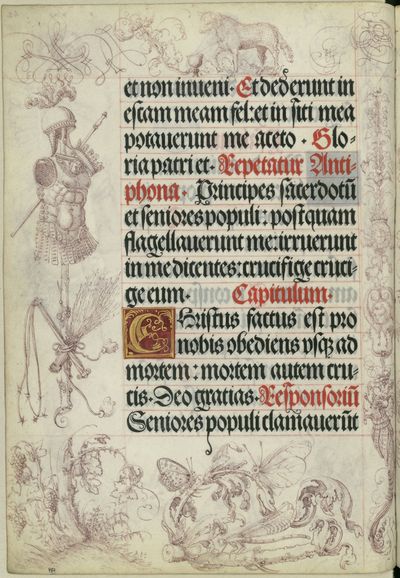 et non inveni · Et dederunt in
escam meam fel: et in siti mea
potauerunt me aceto · Glo-
ria patri et · Repetatur Anti-
phona · Principes sacerdotū
et seniores populi: postquam
flagellauerunt me: irruerunt
in me dicentes: crucifige cruci-
ge eum · Capitulum ·
CHristus factus est pro
nobis obediens vsqȝ ad
mortem: mortem autem cru-
cis · Deo gratias · Responsoriū
Seniores populi clamauerūt